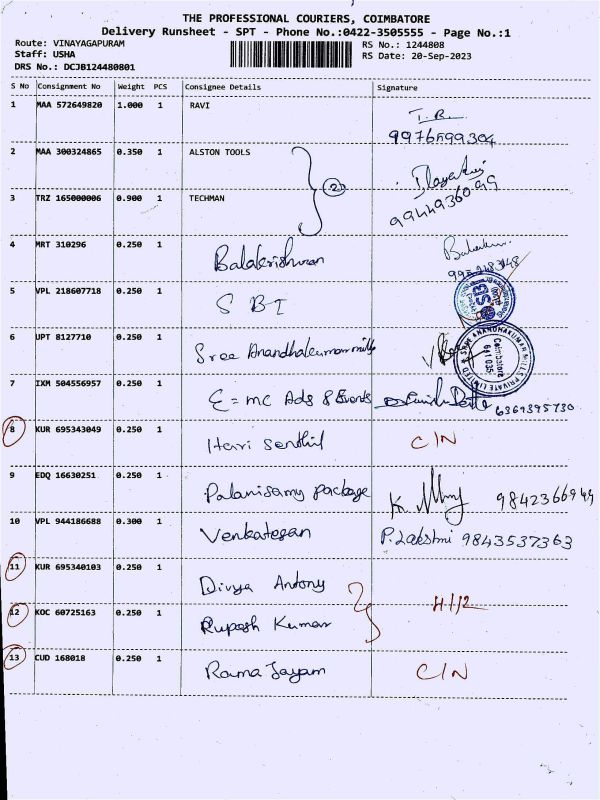 THE PROFESSIONAL COURIERS, COIMBATORE
Delivery Runsheet - SPT - Phone No.:0422-3505555 - Page No.:1
Route: VINAYAGAPURAM RS No.: 1244808
Staff: USHA RS Date: 20-Sep-2023
DRS No.: DCJB124480801
S No Consignment No Weight PCS Consignee Details Signature
1 MAA 572649820 1.000 1 RAVI T.R.
9976599304
2 MAA 300324865 0.350 1 ALSTON TOOLS
2
3 TRZ 165000006 0.900 1 TECHMAN 9944936099
4 MRT 310296 0.250 1 Balakrishnan
5 VPL 218607718 0.250 1 SBI
6 UPT 8127710 0.250 1 Sree Anandhakumar mills
Coimbatore
641 035
7 IXM 504556957 0.250 1 E = mc Ads & Events 6369395730
8 KUR 695343049 0.250 1 Hari Senthil C/N
9 EDQ 16630251 0.250 1 Palanisamy package 9842366949
10 VPL 944186688 0.300 1 Venkatesan P. Lakshmi 9843537363
11 KUR 695340103 0.250 1 Divya Antony
12 KOC 60725163 0.250 1 Rupesh Kumar
13 CUD 168018 0.250 1 Rama Jayam C/N